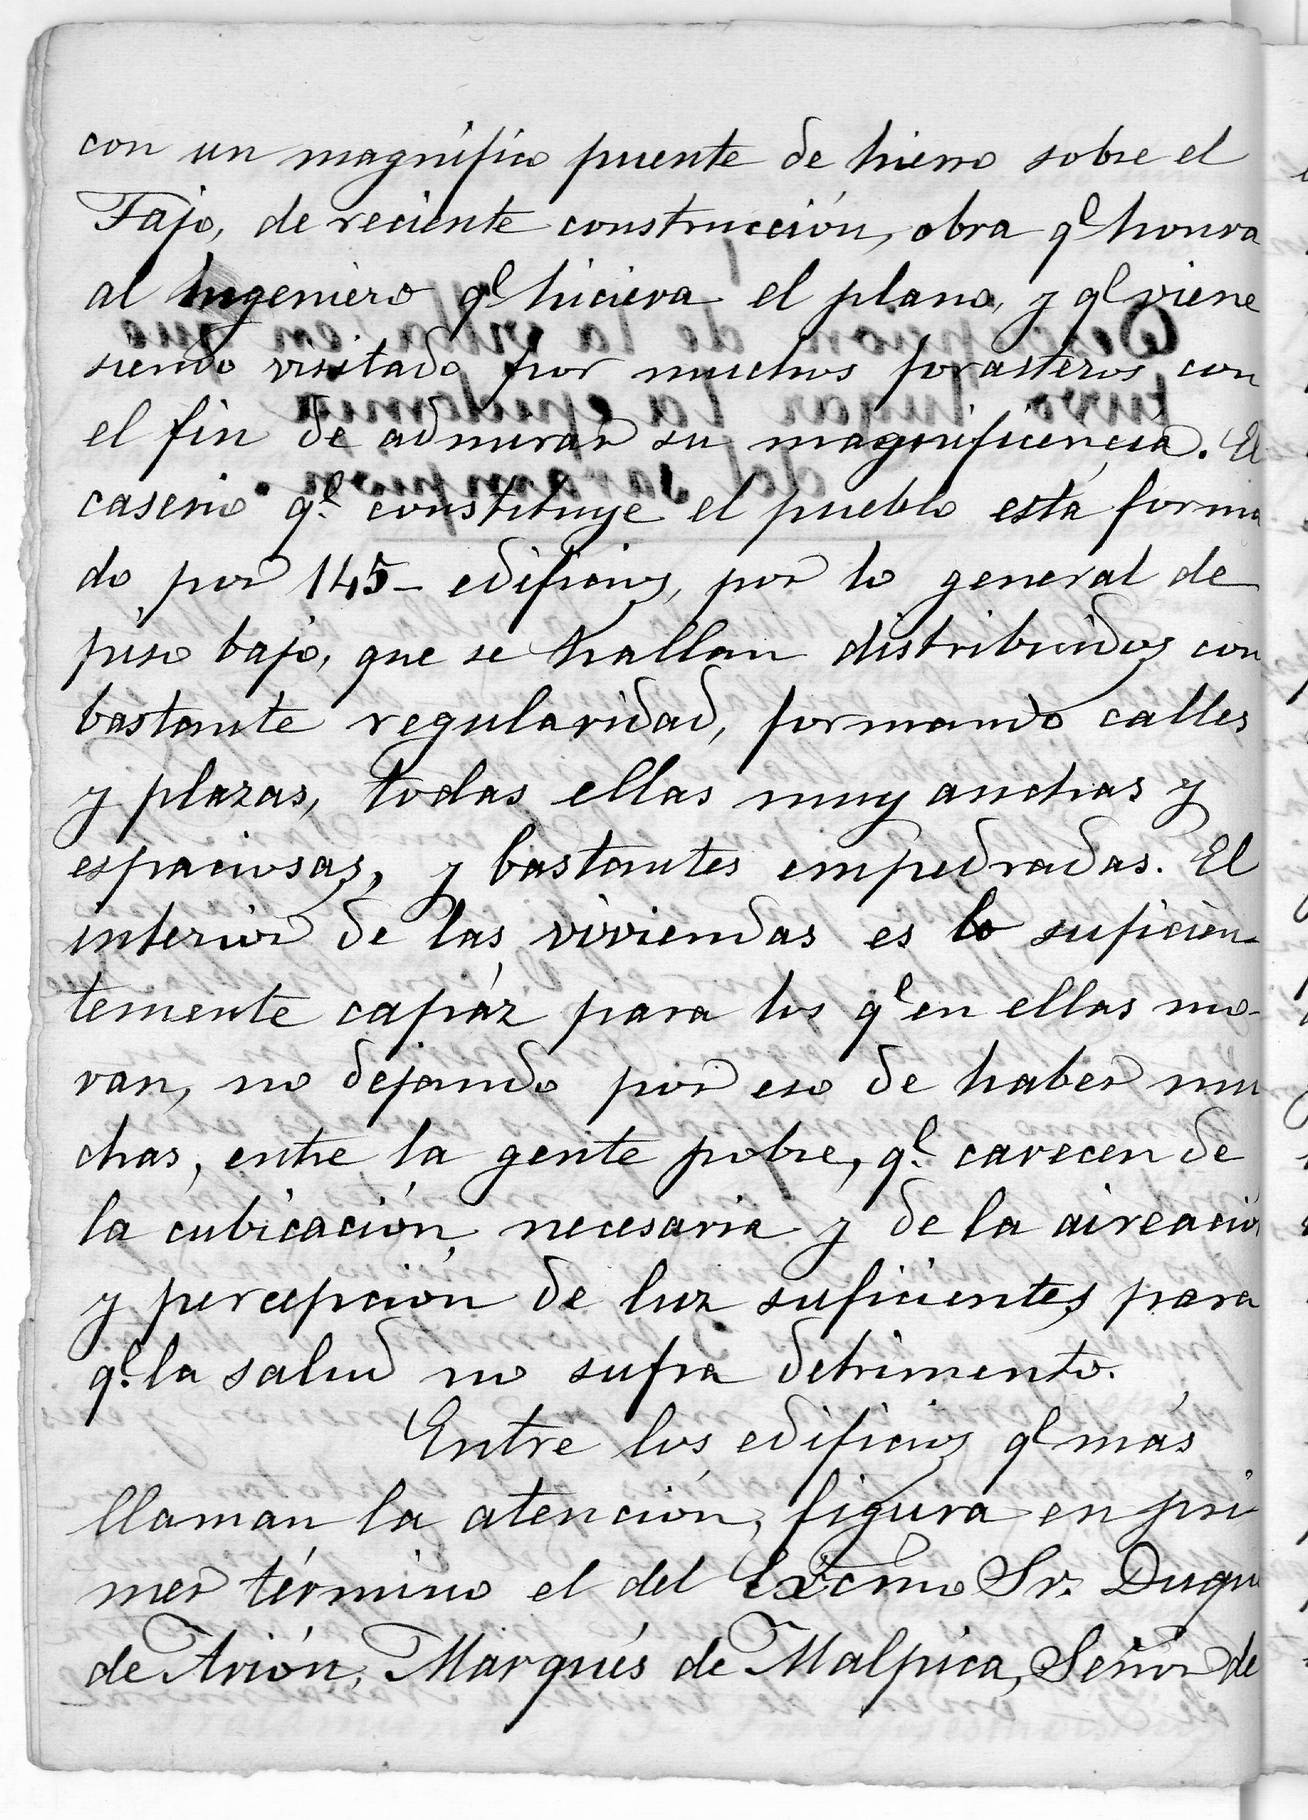 con un magnífico puente de hierro sobre el
Tajo, de reciente construcción, obra q.e honra
al Ingeniero q.e hiciera el plano, y q.e viene
siendo visitado por muchos forasteros con
el fin de admirar su magnificencia. El
caserio q.e constituye el pueblo está forma
do por 145- edificios, por lo general de
piso bajo, que se hallan distribuidos con
bastante regularidad, formando calles
y plazas, todas ellas muy anchas y
espaciosas, y bastantes empedradas. El
interior de las viviendas es lo suficien-
temente capáz para los q.e en ellas mo-
ran, no dejando por eso de haber mu
chas, entre la gente pobre, q.e carecen de
la cubicación necesaria y de la aireación
y percepción de luz suficientes, para
q.e la salud no sufra detrimento.
Entre los edificios q.e más
llaman la atención, figura en pri
mer término el del Excmo Sr. Duque
de Arión, Marqués de Malpica, Señor de